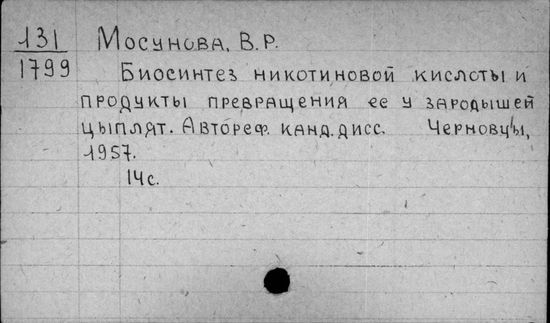 131 Мосунова, В.Р.
1799 Биосинтез никотиновой кислоты и
продукты превращения ее у зародышей
цыплят. Автореф. канд. дисс. Черновцы,
1957.
14с.